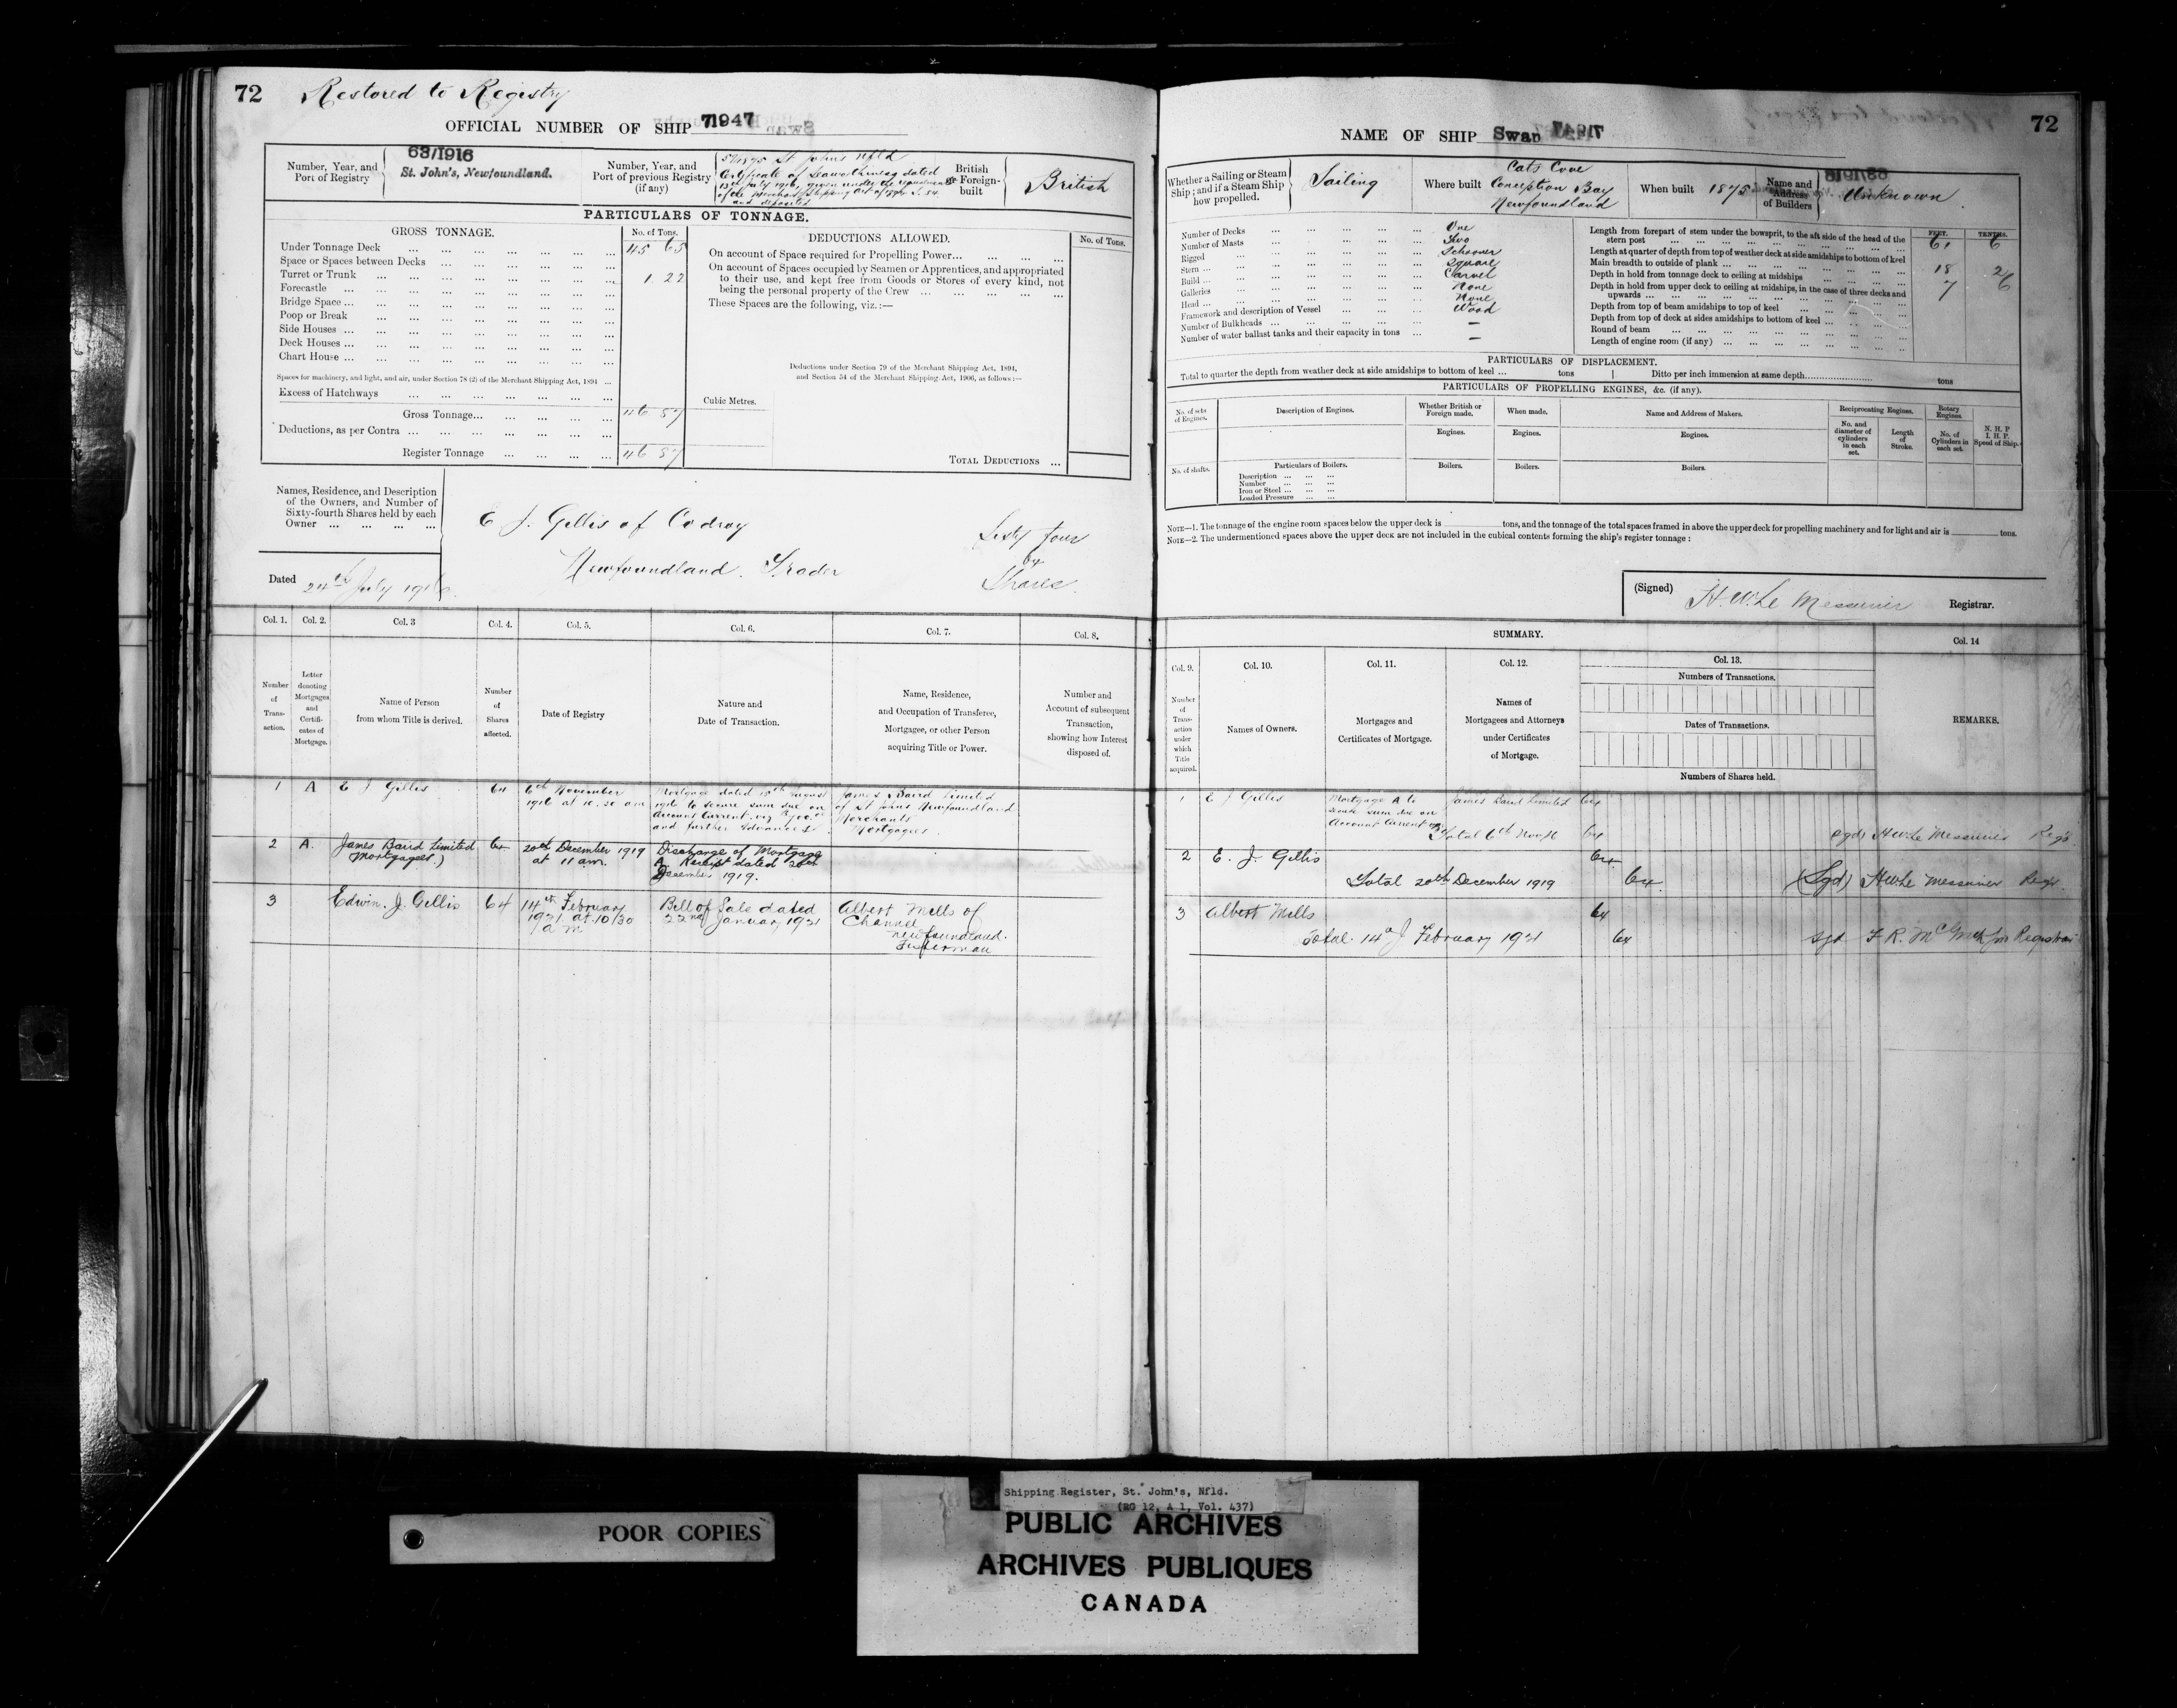 72
Restored to Registry
OFFICIAL NUMBER OF SHIP 71947
Number, Year, and Port of Registry
63/1916
St. John's, Newfoundland.
Number, Year, and Port of previous Registry (if any)
St John's Nfld
Certificate of Seaworthiness dated
13th July 1916, given under the requirements
of the Merchant Shipping Act of 1894 S. 54
and deposited
British or Foreign-built
British
PARTICULARS OF TONNAGE.
GROSS TONNAGE.
No. of Tons.
Under Tonnage Deck 45 65
Space or Spaces between Decks
Turret or Trunk 1 22
Forecastle
Bridge Space
Poop or Break
Side Houses
Deck Houses
Chart House
Spaces for machinery, and light, and air, under Section 78 (2) of the Merchant Shipping Act, 1894
Excess of Hatchways
Gross Tonnage 46 87
Deductions, as per Contra
Register Tonnage 46 87
DEDUCTIONS ALLOWED.
No. of Tons.
On account of Space required for Propelling Power
On account of Spaces occupied by Seamen or Apprentices, and appropriated
to their use, and kept free from Goods or Stores of every kind, not
being the personal property of the Crew
These Spaces are the following, viz.:—
Deductions under Section 79 of the Merchant Shipping Act, 1894,
and Section 54 of the Merchant Shipping Act, 1906, as follows:—
Cubic Metres.
TOTAL DEDUCTIONS
Names, Residence, and Description
of the Owners, and Number of
Sixty-fourth Shares held by each
Owner
E J. Gillis of Codroy
Newfoundland. Trader
Sixty four
64
Shares.
Dated 24th July 1916.
Col. 1. Col. 2. Col. 3 Col. 4. Col. 5. Col. 6. Col. 7. Col. 8.
Number of Transaction.
Letter denoting Mortgages and Certificates of Mortgage.
Name of Person from whom Title is derived.
Number of Shares affected.
Date of Registry
Nature and Date of Transaction.
Name, Residence, and Occupation of Transferee, Mortgagee, or other Person acquiring Title or Power.
Number and Account of subsequent Transaction, showing how Interest disposed of.
1 A E J Gillis 64 6th November
1916 at 10.30 am
Mortgage dated 15th August
1916 to secure sum due on
Account Current
and further Advances.
James Baird Limited
of St John's Newfoundland
Merchants
Mortgagees.
2 A. James Baird Limited
(Mortgagees.)
64 20th December 1919
at 11 am.
Discharge of Mortgage
A. Receipt dated 20th
December 1919.
3 Edwin. J. Gillis 64 14th February
1921 at 10/30
a m
Bill of Sale dated
22nd January 1921
Albert Mills of
Channel
Newfoundland.
Fisherman
72
NAME OF SHIP Swan
Whether a Sailing or Steam Ship; and if a Steam Ship how propelled.
Sailing
Where built
Cats Cove
Conception Bay
Newfoundland
When built 1875
Name and Address of Builders
Unknown.
Number of Decks One
Number of Masts Two
Rigged Schooner
Stern Square
Build Carvel
Galleries None
Head None
Framework and description of Vessel Wood
Number of Bulkheads —
Number of water ballast tanks and their capacity in tons —
FEET. TENTHS.
Length from forepart of stem under the bowsprit, to the aft side of the head of the
stern post 61 6
Length at quarter of depth from top of weather deck at side amidships to bottom of keel
Main breadth to outside of plank 18 2
Depth in hold from tonnage deck to ceiling at midships 7 6
Depth in hold from upper deck to ceiling at midships, in the case of three decks and
upwards
Depth from top of beam amidships to top of keel
Depth from top of deck at sides amidships to bottom of keel
Round of beam
Length of engine room (if any)
PARTICULARS OF DISPLACEMENT.
Total to quarter the depth from weather deck at side amidships to bottom of keel ... tons
Ditto per inch immersion at same depth tons
PARTICULARS OF PROPELLING ENGINES, &c. (if any).
No. of sets of Engines.
Description of Engines.
Whether British or Foreign made.
When made.
Name and Address of Makers.
Reciprocating Engines.
Rotary Engines.
N. H. P
I. H. P.
Speed of Ship.
Engines. Engines. Engines.
No. and diameter of cylinders in each set.
Length of Stroke.
No. of Cylinders in each set.
No. of shafts.
Particulars of Boilers.
Description
Number
Iron or Steel
Loaded Pressure
Boilers. Boilers. Boilers.
NOTE—1. The tonnage of the engine room spaces below the upper deck is tons, and the tonnage of the total spaces framed in above the upper deck for propelling machinery and for light and air is tons.
NOTE—2. The undermentioned spaces above the upper deck are not included in the cubical contents forming the ship's register tonnage:
(Signed) H.W. Le Messurier Registrar.
SUMMARY.
Col. 9. Col. 10. Col. 11. Col. 12. Col. 13. Col. 14
Number of Transaction under which Title acquired.
Names of Owners.
Mortgages and Certificates of Mortgage.
Names of Mortgagees and Attorneys under Certificates of Mortgage.
Numbers of Transactions.
Dates of Transactions.
Numbers of Shares held.
REMARKS.
1 E J Gillis
Mortgage A to
secure sum due on
Account Current
James Baird Limited 64
Total 6th Nov 16 64
(sgd) H W Le Messurier Regr.
2 E. J. Gillis 64
Total 20th December 1919 64
(Sgd) H W Le Messurier Regr.
3 Albert Mills 64
Total 14th February 1921 64
sgd
Registrar
POOR COPIES
Shipping Register, St. John's, Nfld.
(RG 12, A 1, Vol. 437)
PUBLIC ARCHIVES
ARCHIVES PUBLIQUES
CANADA